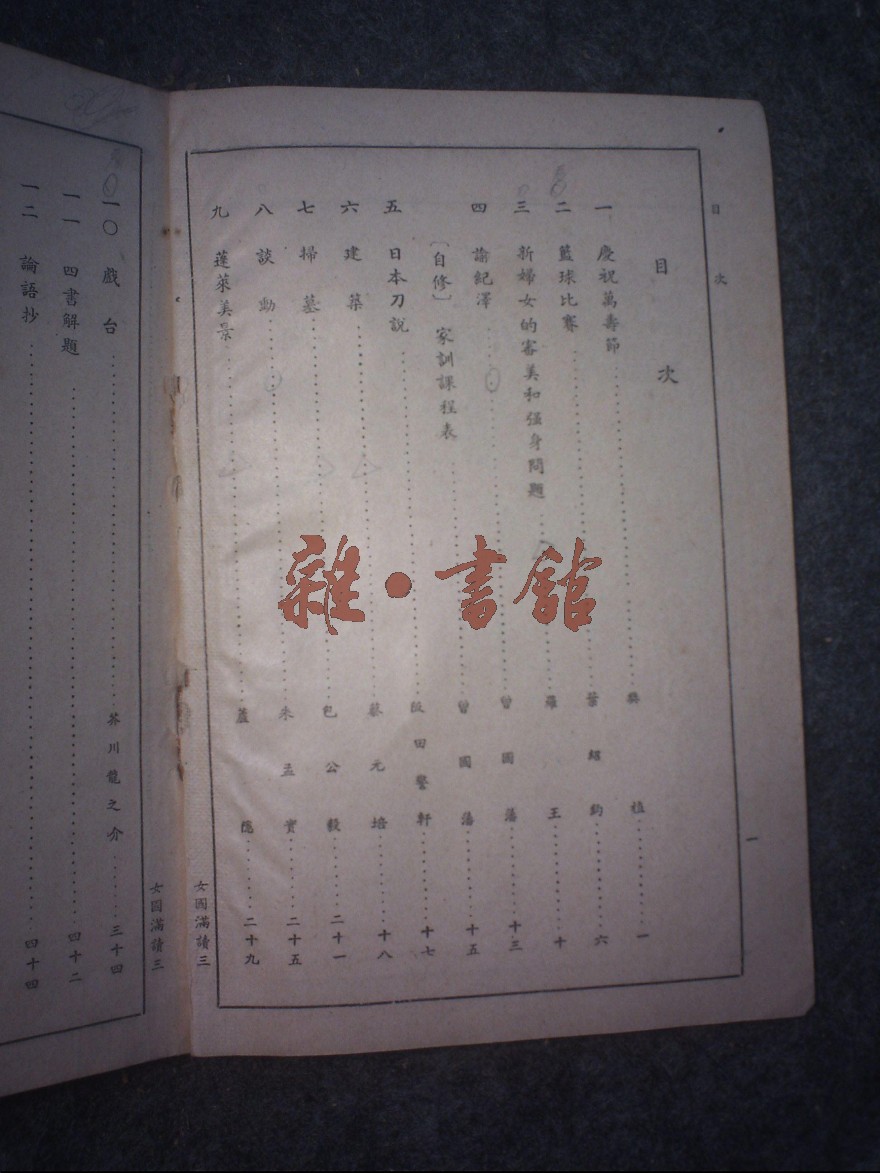 目次
一
目次
一 慶祝萬壽節 樊植 一
二 籃球比賽 葉紹鈞 六
三 新婦女的審美和強身問題 羅王 十
四 諭紀澤 曾國藩 十三
〔自修〕 家訓課程表 曾國藩 十五
五 日本刀說 阪田警軒 十七
六 建築 蔡元培 十八
七 掃墓 包公毅 二十一
八 談動 朱孟實 二十五
九 蓬萊美景 蓋隱 二十九
女國滿讀三
雜·書舘
女國滿讀三
一〇 戲台 芥川龍之介 三十四
一一 四書解題 四十二
一二 論語抄 四十四